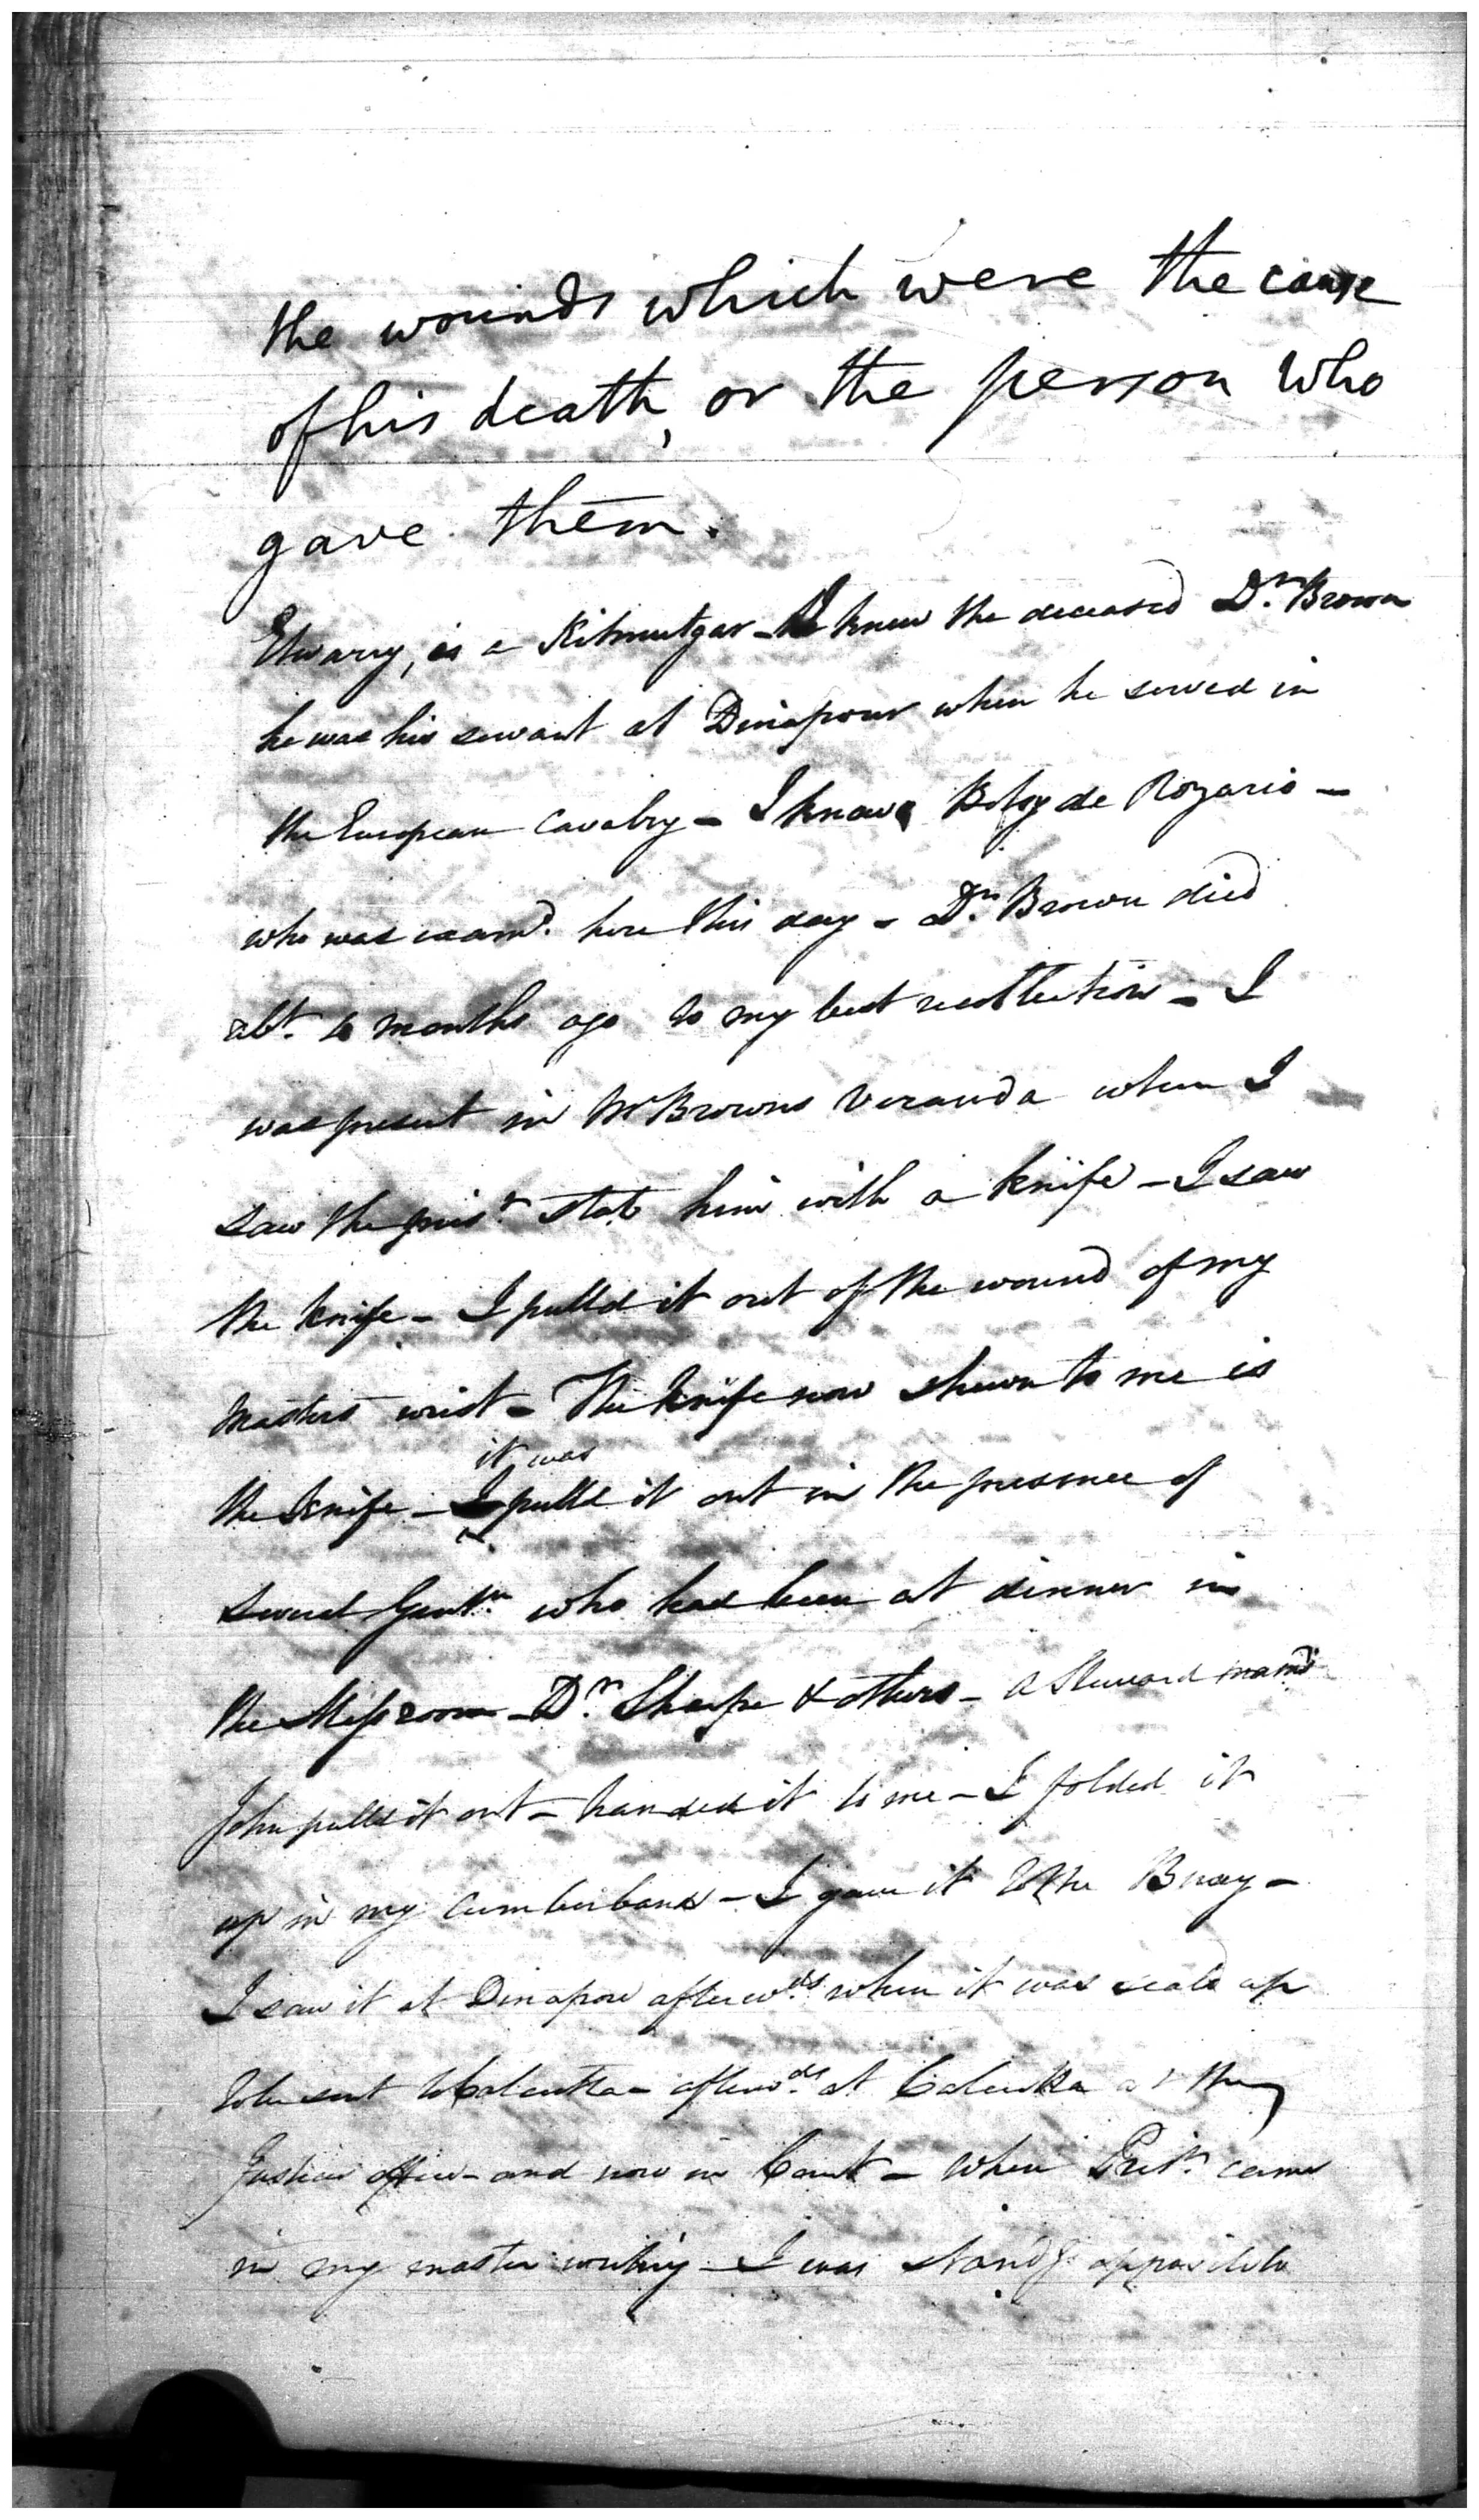 the wounds which were the cause
of his death, or the person who
gave them.
Etwarry, is a Kitmutgar - I knew the deceased Dr. Brown
he was his servant at Dinapour when he served in
the European Cavalry - I know Betsy de Rozario -
who was examd. here this day - Dr. Brown died
abt. months ago to my best recollection - I
was present in Mr Browns Veranda when I
saw the prisr. stab him with a knife - I saw
the knife - I pulld it out of the wound of my
Masters wrist - The knife now shewn to me is
it was
the knife - pulld it out in the presence of
several Gentn. who had been at dinner in
the Mess room - Dr. Sharpe & others - a Steward namd
John pulld it out - handed it to me - I folded it
up in my Cumberband - I gave it to the Buxy -
I saw it at Dinapore afterwds. when it was seald up
to be sent to Calcutta - afterwds. at Calcutta at the
Justice office - and now in Court - When Prisr. came
in my master writing - I was standg. opposite to